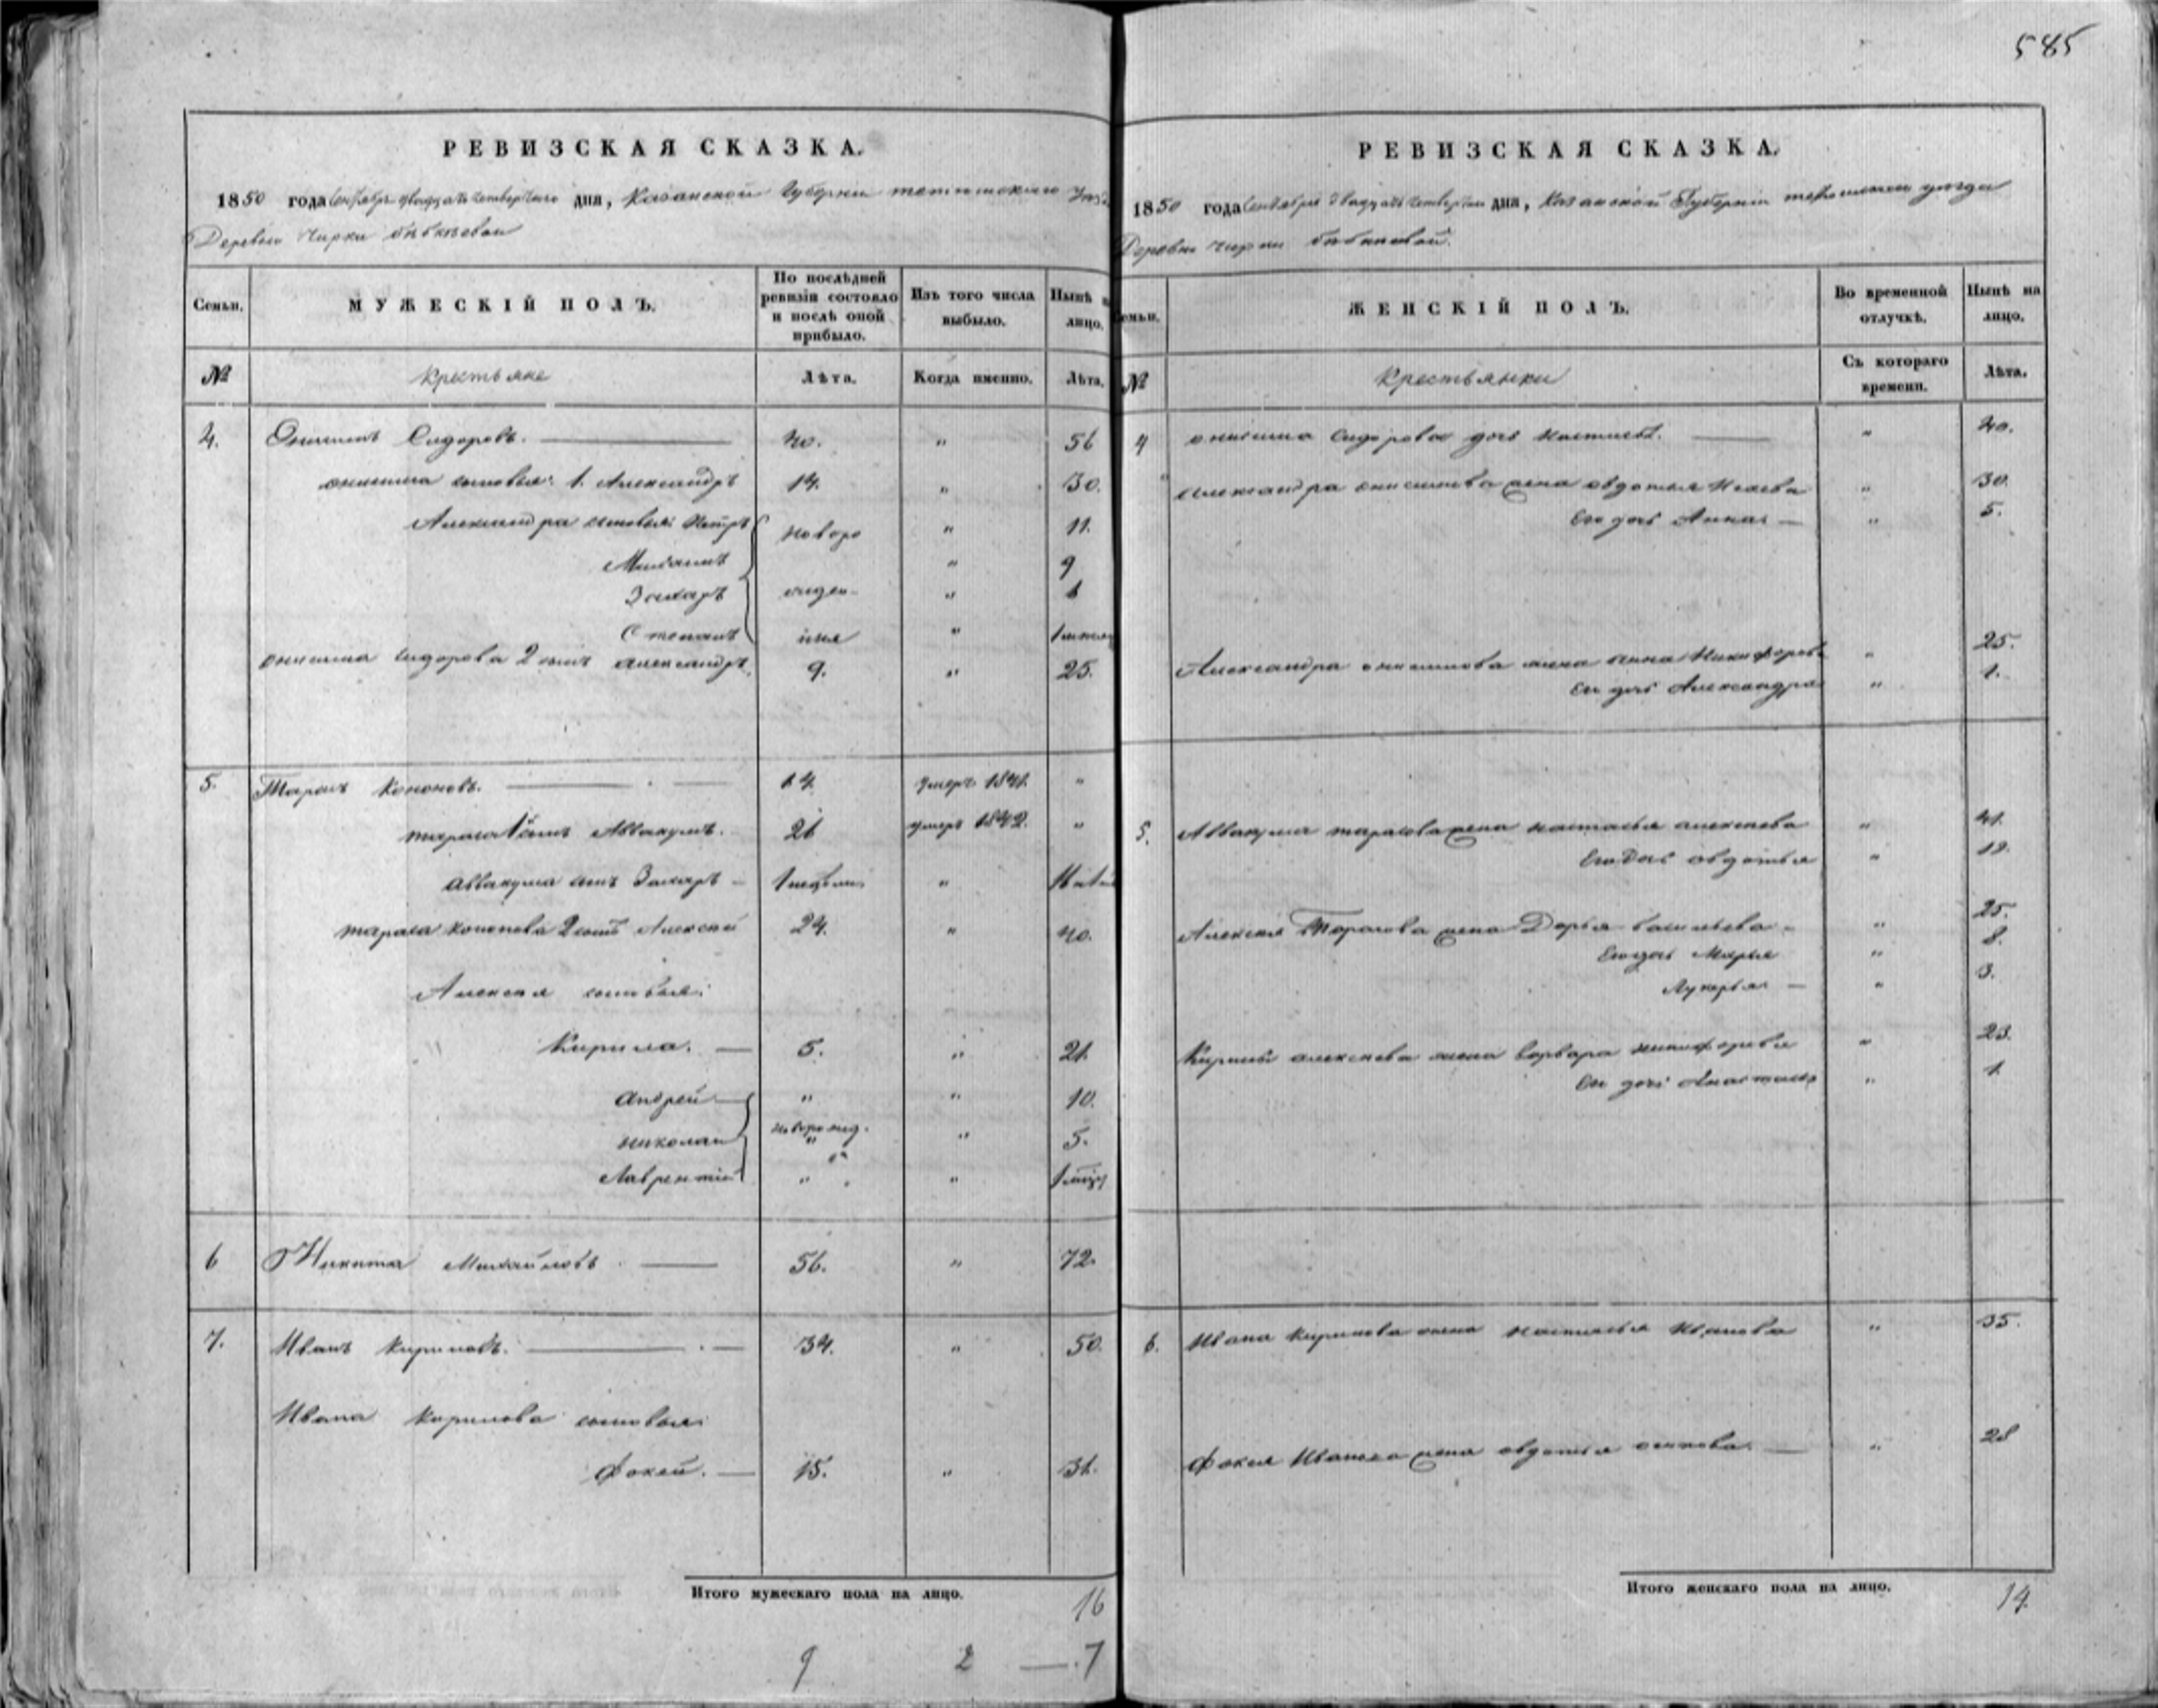 585
РЕВИЗСКАЯ СКАЗКА.
1850 года Сентября двадцать четвертаго дня, Казанской Губерніи тетюшскаго
Деревни Чирки
Семьи.
МУЖЕСКІЙ ПОЛЪ.
По послѣдней ревизіи состояло и послѣ оной прибыло.
Изъ того числа выбыло.
Нынѣ на лицо.
№
Крестьяне
Лѣта.
Когда именно.
Лѣта.
4. Онисимъ Сидоровъ. 40. " 56
онисима сыновья: 1. Александръ 14. " 30.
Александра сыновья: Петръ новоро " 11.
" 9
Захаръ " 6
Степанъ "
онисима сидорова 2 сынъ александръ 9. " 25.
5. Тарасъ Кононовъ. 64. умеръ 1841. "
тараса 1й сынъ Аввакумъ. 26 умеръ 1842. "
аввакума сынъ Захаръ "
тараса кононова 2 сынъ Алексей 24. " 40.
Алексея сыновья:
Кирила. 5. " 21.
андрей " " 10.
николаи новорожд. " 5.
Лаврентій " "
6 Никита Михайловъ 56. " 72.
7. Иванъ Кириловъ. 34. " 50.
Ивана Кирилова сыновья:
Фокей. 15. " 31.
Итого мужескаго пола на лицо.
16
9 2 — 7
РЕВИЗСКАЯ СКАЗКА.
1850 года Сентября двадцать четвертаго дня, Казанской Губерніи уезда
Деревни Чирки
Семьи.
ЖЕНСКІЙ ПОЛЪ.
Во временной отлучкѣ.
Нынѣ на лицо.
№
Крестьянки
Съ котораго времени.
Лѣта.
4 онисима Сидорова дочь " 40.
Александра онисимова жена авдотья " 30.
Его дочь Анна " 5.
Александра онисимова жена анна Никифорова " 25.
Ея дочь Александра " 1.
5. Аввакума тарасова жена наталья алексеева " 41.
Его дочь авдотья " 19.
Алексея Тарасова жена Дарья васильева " 25.
Его дочь Марья " 8.
Лукерья " 3.
Кирилы алексеева жена варвара никифорова " 23.
Ея дочь Анастасья " 1
6. Ивана Кирилова жена Наталья Иванова " 35.
Фокея Иванова жена авдотья " 28
Итого женскаго пола на лицо.
14.